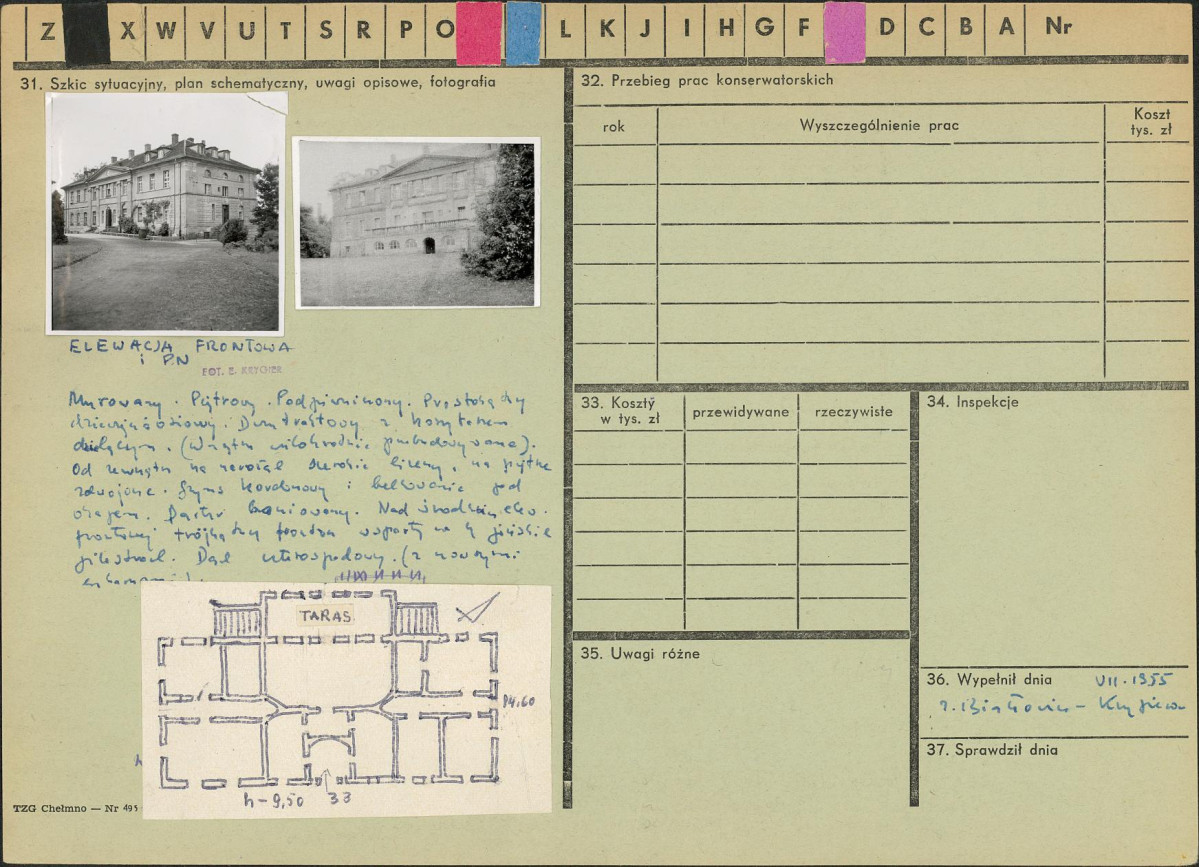 Z X W V U T S R P O L K J I H G F D C B A Nr
31. Szkic sytuacyjny, plan schematyczny, uwagi opisowe, fotografia
ELEWACJA FRONTOWA
i PN
FOT. E. KRYGIER
Murowany. Piętrowy. Podpiwniczony. Prostokątny
dziewięcioosiowy. Dwutraktowy z korytarzem
dzielącym. (Wnętrza wielokrotnie przebudowywane).
Od zewnątrz na narożach szerokie lizeny, na piętrze
zdwojone. Gzyms kordonowy i belkowanie pod
okapem. Parter boniowany. Nad środkiem elew.
frontowej trójkątny fronton wsparty na 4 jońskich
pilastrach. Dach czterospadowy. (z nowszymi
TARAS
14.60
h-9,50 33
TZG Chełmno — Nr 495
32. Przebieg prac konserwatorskich
rok
Wyszczególnienie prac
Koszt
tys. zł
33. Koszty
w tys. zł
przewidywane
rzeczywiste
34. Inspekcje
35. Uwagi różne
36. Wypełnił dnia VII. 1955
37. Sprawdził dnia